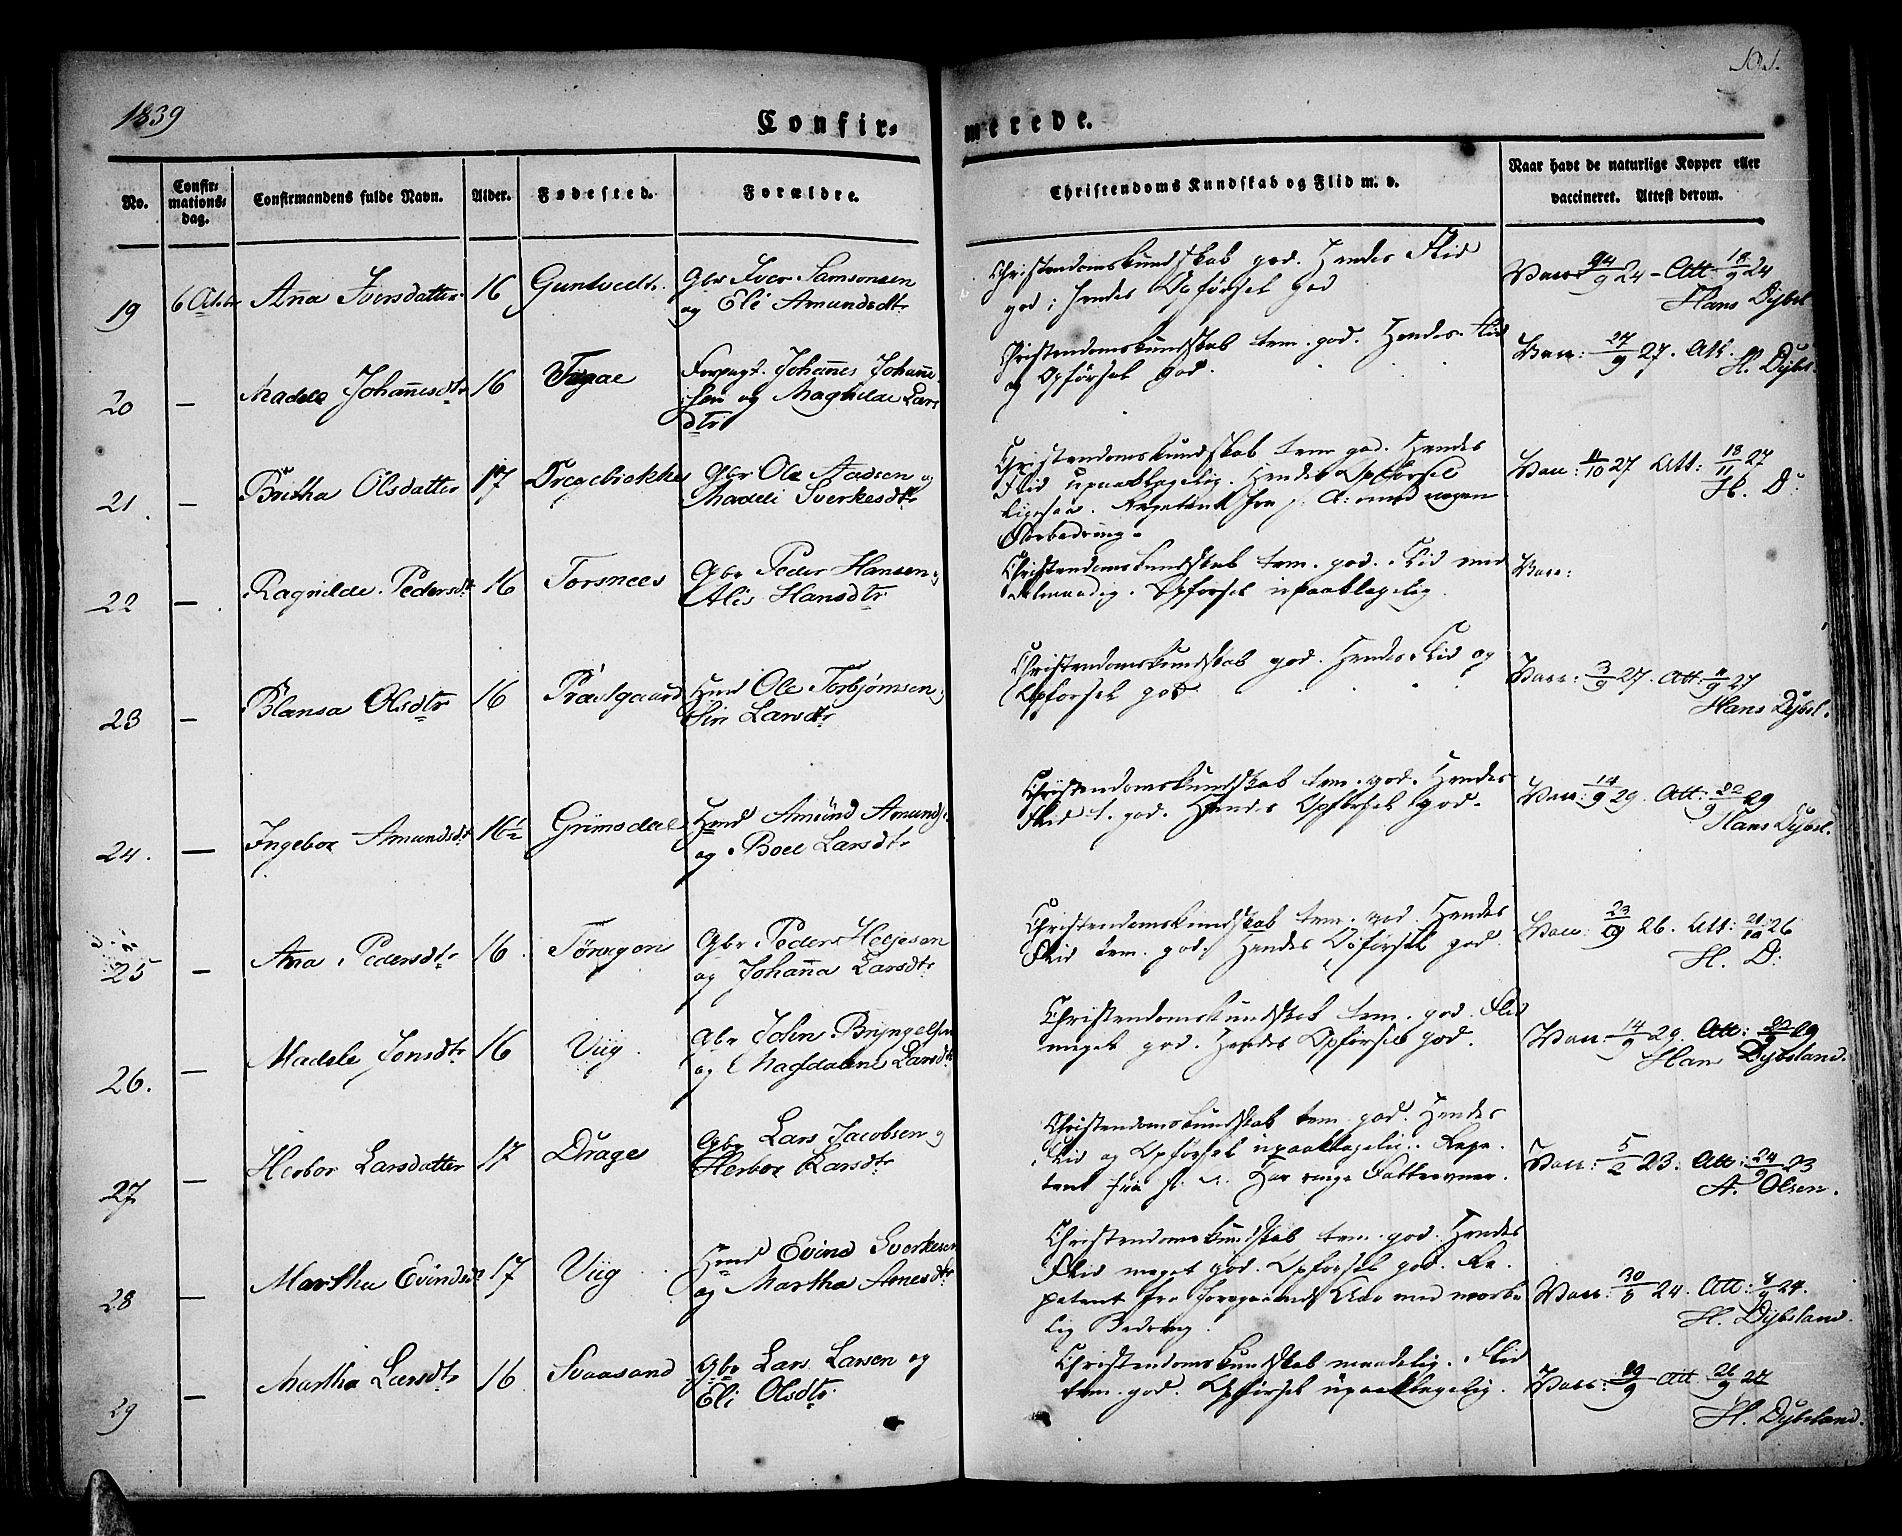 1839
Confirmerede.
101.
No.
Confirmationsdag.
Confirmandens fulde Navn.
Alder.
Fødested.
Forældre.
Christendoms Kundskab og Flid m. v.
Naar havt de naturlige Kopper eller
vaccineret. Attest derom.
19 6 Octbr Aña Iversdatter 16 Gbr Iver Samsonsen
og Eli Amundsdtr
Christendomskundskab god. Hendes Flid
god; Hendes Opførsel god
Vacc 24 - Att 18/9 24
Hans Dybsl
20 – Madele Johañesdtr 16
Forpagt. Johañes Johañe-
sen og Maghilde Lars
dtr
Christendomskundskab tem. god. Hendes Flid
og Opførsel god.
Vacc: 27/9 27. Att.
H. Dybsl
21. – Britha Olsdatter 17
Gbr Ole Aadsen og
Madeli Sverkesdtr
Christendomskundskab tem god. Hendes
Flid upaaklagelig. Hendes Opførsel
ligesaa. Repetent fra f. A: med nogen
Forbedring.
Vacc: 11/10 27 Att: 13/11 27
H. D:
22 – Ragnilde Pedersdtr 16 Torsnees
Gbr Peder Hansen og
Alis Hansdtr
Christendomskundskab tem. god. Flid mid
delmaadig. Opførsel upaaklagelig.
Vacc:
23 – Blansa Olsdtr 16 Præstgaard
Hmd Ole Torbjørnsen og
Siri Larsdtr
Christendomskundskab god. Hendes Flid og
Opførsel god.
Vacc: 3/9 27. Att: 11/9 27
Hans Dybsl.
24. – Ingebor Amundsdt 16½ Grimsdal
Hmd Amünd Amunds.
og Boel Larsdtr
Christendomskundskab tem. god. Hendes
Flid t. god. Hendes Opførsel god.
Vacc: 14/9 29. Att: 22/9 29
Hans Dybsl.
25 – Aña Pedersdtr 16.
Gbr Peder Heljesen
og Johaña Larsdtr
Christendomskundskab tem. god. Hendes
Flid tem. god. Hendes Opførsel god.
Vacc: 26. Att: 26
H. D:
26. – Madele Jonsdtr 16 Viig.
Gbr John Bryngelsen
og Magdalene Larsdtr
Christendomskundskab tem. god. Flid
meget god. Hendes Opførsel god.
Vacc: 14/9 29. Att: 22/9 29
Hans Dybsland.
27 – Herbor Larsdatter 17 Drage
Gbr Lars Jacobsen og
Herbor Larsdtr
Christendomskundskab tem. god. Hendes
Flid og Opførsel upaaklagelig. Repe-
tent fra f. A. Har ringe Fatteevner.
Vacc: 5/2 23. Att: 24/9 23
A. Olsen.
28 – Martha Evindsdt 17 Viig
Hmd Evind Sverkesen
og Martha Arnesdtr
Christendomskundskab tem. god. Hendes
Flid meget god. Opførsel god. Re-
petent fra foregaaende Aar med mærke
lig Bedring.
Vacc: 30/8 24. Att: 24.
H. Dybsland.
29 – Martha Larsdtr 16 Svaasand
Gbr Lars Larsen og
Eli Olsdtr.
Christendomskundskab maadelig. Flid
tem. god. Opførsel upaaklagelig.
Vacc: Att 26/9 27
H. Dybsland.